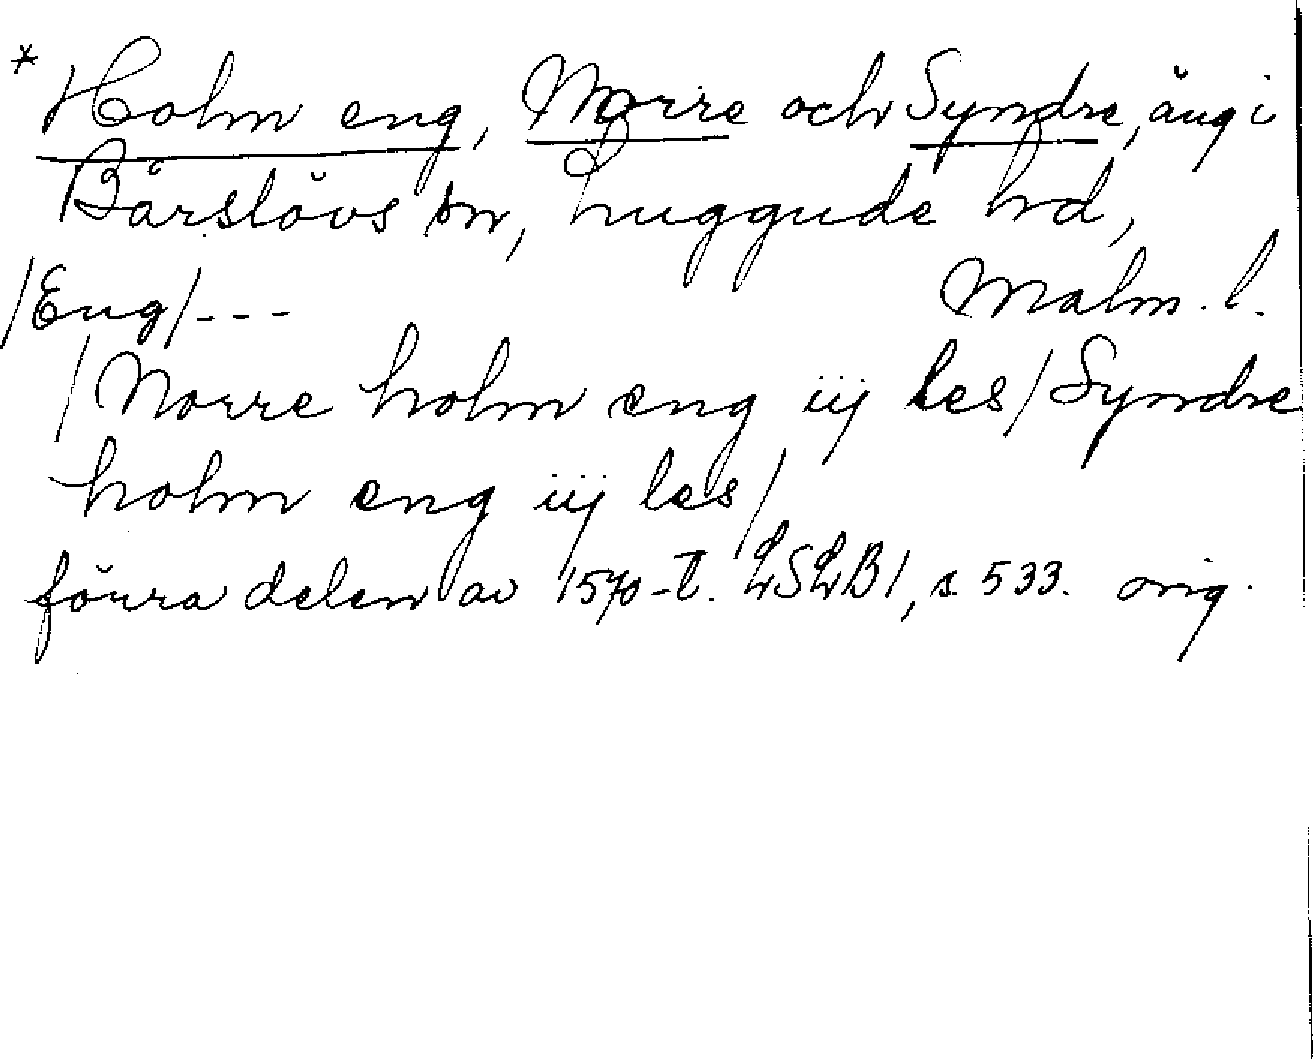 * Holm eng, Norre och Syndre, äng i
Bårslövs sn, Luggude hd,
/Eng/ - - -
Malm. l.
/Norre holm eng iij les/ Syndre
holm eng iij les/
förra delen av 1570-t. LSLB1, s. 533. orig.